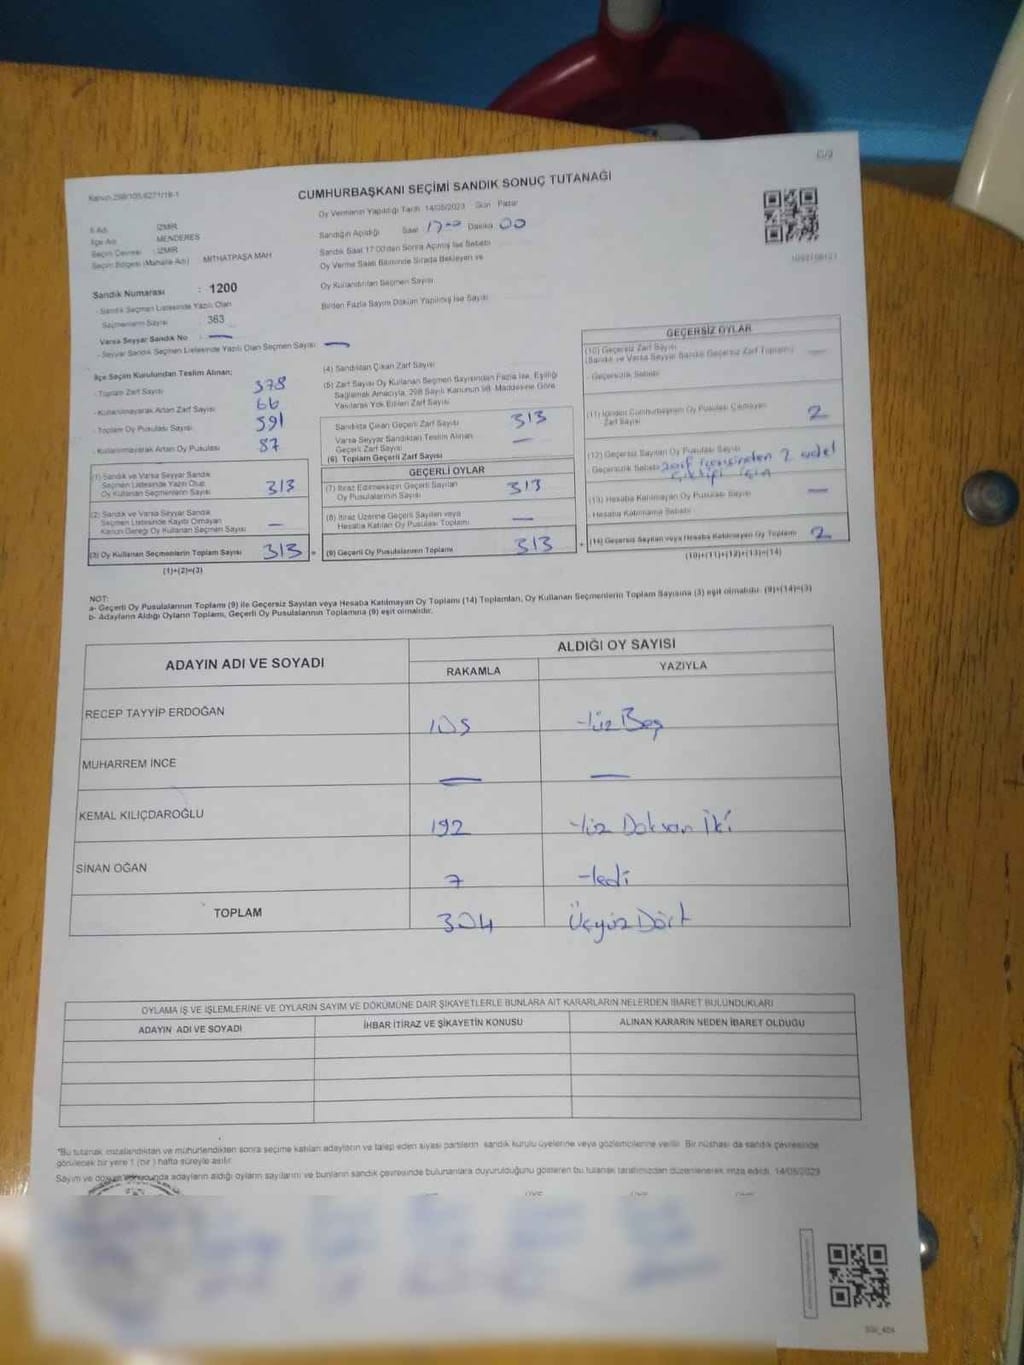 Kanun 298/105,6271/19-1
CUMHURBAŞKANI SEÇİMİ SANDIK SONUÇ TUTANAĞI
Oy Vermenin Yapıldığı Tarih 14/05/2023 Gün Pazar
İl Adı İZMİR
İlçe Adı MENDERES
Seçim Çevresi : İZMİR
Seçim Bölgesi (Mahalle Adı) : MİTHATPAŞA MAH
Sandık Numarası : 1200
- Sandık Seçmen Listesinde Yazılı Olan
Seçmenlerin Sayısı : 363
Varsa Seyyar Sandık No : —
- Seyyar Sandık Seçmen Listesinde Yazılı Olan Seçmen Sayısı : —
Sandığın Açıldığı Saat 17:00 Dakika 00
Sandık Saat 17:00'den Sonra Açılmış İse Sebebi
Oy Verme Saati Bitiminde Sırada Bekleyen ve
Oy Kullandırılan Seçmen Sayısı
Birden Fazla Sayım Döküm Yapılmış İse Sayısı
İlçe Seçim Kurulundan Teslim Alınan;
- Toplam Zarf Sayısı 378
- Kullanılmayarak Artan Zarf Sayısı 66
- Toplam Oy Pusulası Sayısı 391
- Kullanılmayarak Artan Oy Pusulası 87
(1) Sandık ve Varsa Seyyar Sandık
Seçmen Listesinde Yazılı Olup
Oy Kullanan Seçmenlerin Sayısı 313
(2) Sandık ve Varsa Seyyar Sandık
Seçmen Listesinde Kaydı Olmayan
Kanun Gereği Oy Kullanan Seçmen Sayısı —
(3) Oy Kullanan Seçmenlerin Toplam Sayısı 313
(1)+(2)=(3)
(4) Sandıktan Çıkan Zarf Sayısı
(5) Zarf Sayısı Oy Kullanan Seçmen Sayısından Fazla İse, Eşitliği
Sağlamak Amacıyla, 298 Sayılı Kanunun 98. Maddesine Göre
Yakılarak Yok Edilen Zarf Sayısı
Sandıkta Çıkan Geçerli Zarf Sayısı 313
Varsa Seyyar Sandıktan Teslim Alınan
Geçerli Zarf Sayısı —
(6) Toplam Geçerli Zarf Sayısı
GEÇERLİ OYLAR
(7) İtiraz Edilmeksizin Geçerli Sayılan
Oy Pusulalarının Sayısı 313
(8) İtiraz Üzerine Geçerli Sayılan veya
Hesaba Katılan Oy Pusulası Toplamı —
= (9) Geçerli Oy Pusulalarının Toplamı 313
GEÇERSİZ OYLAR
(10) Geçersiz Zarf Sayısı
(Sandık ve Varsa Seyyar Sandık Geçersiz Zarf Toplamı) —
- Geçersizlik Sebebi
(11) İçinden Cumhurbaşkanı Oy Pusulası Çıkmayan
Zarf Sayısı 2
(12) Geçersiz Sayılan Oy Pusulası Sayısı
- Geçersizlik Sebebi zarf içerisinden 2 adet
çıktığı için
(13) Hesaba Katılmayan Oy Pusulası Sayısı —
- Hesaba Katılmama Sebebi
+ (14) Geçersiz Sayılan veya Hesaba Katılmayan Oy Toplamı 2
(10)+(11)+(12)+(13)=(14)
NOT:
a- Geçerli Oy Pusulalarının Toplamı (9) ile Geçersiz Sayılan veya Hesaba Katılmayan Oy Toplamı (14) Toplamları, Oy Kullanan Seçmenlerin Toplam Sayısına (3) eşit olmalıdır. (9)+(14)=(3)
b- Adayların Aldığı Oyların Toplamı, Geçerli Oy Pusulalarının Toplamına (9) eşit olmalıdır.
ADAYIN ADI VE SOYADI
ALDIĞI OY SAYISI
RAKAMLA YAZIYLA
RECEP TAYYİP ERDOĞAN 105 Yüz Beş
MUHARREM İNCE — —
KEMAL KILIÇDAROĞLU 192 Yüz Doksan İki
SİNAN OĞAN 7 Yedi
TOPLAM 304 Üçyüz Dört
OYLAMA İŞ VE İŞLEMLERİNE VE OYLARIN SAYIM VE DÖKÜMÜNE DAİR ŞİKAYETLERLE BUNLARA AİT KARARLARIN NELERDEN İBARET BULUNDUKLARI
ADAYIN ADI VE SOYADI İHBAR İTİRAZ VE ŞİKAYETİN KONUSU ALINAN KARARIN NEDEN İBARET OLDUĞU
*Bu tutanak imzalandıktan ve mühürlendikten sonra seçime katılan adayların ve talep eden siyasi partilerin sandık kurulu üyelerine veya gözlemcilerine verilir. Bir nüshası da sandık çevresinde
görülecek bir yere 1 (bir) hafta süreyle asılır.
Sayım ve döküm sonucunda adayların aldığı oyların sayılarını ve bunların sandık çevresinde bulunanlara duyurulduğunu gösteren bu tutanak tarafımızdan düzenlenerek imza edildi. 14/05/2023